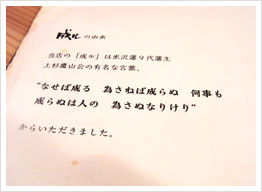 成ルの由来
当店の「成ル」は米沢藩9代藩主
上杉鷹山公の有名な言葉、
"なせば成る　為さねば成らぬ　何事も
成らぬは人の　為さぬなりけり"
からいただきました。